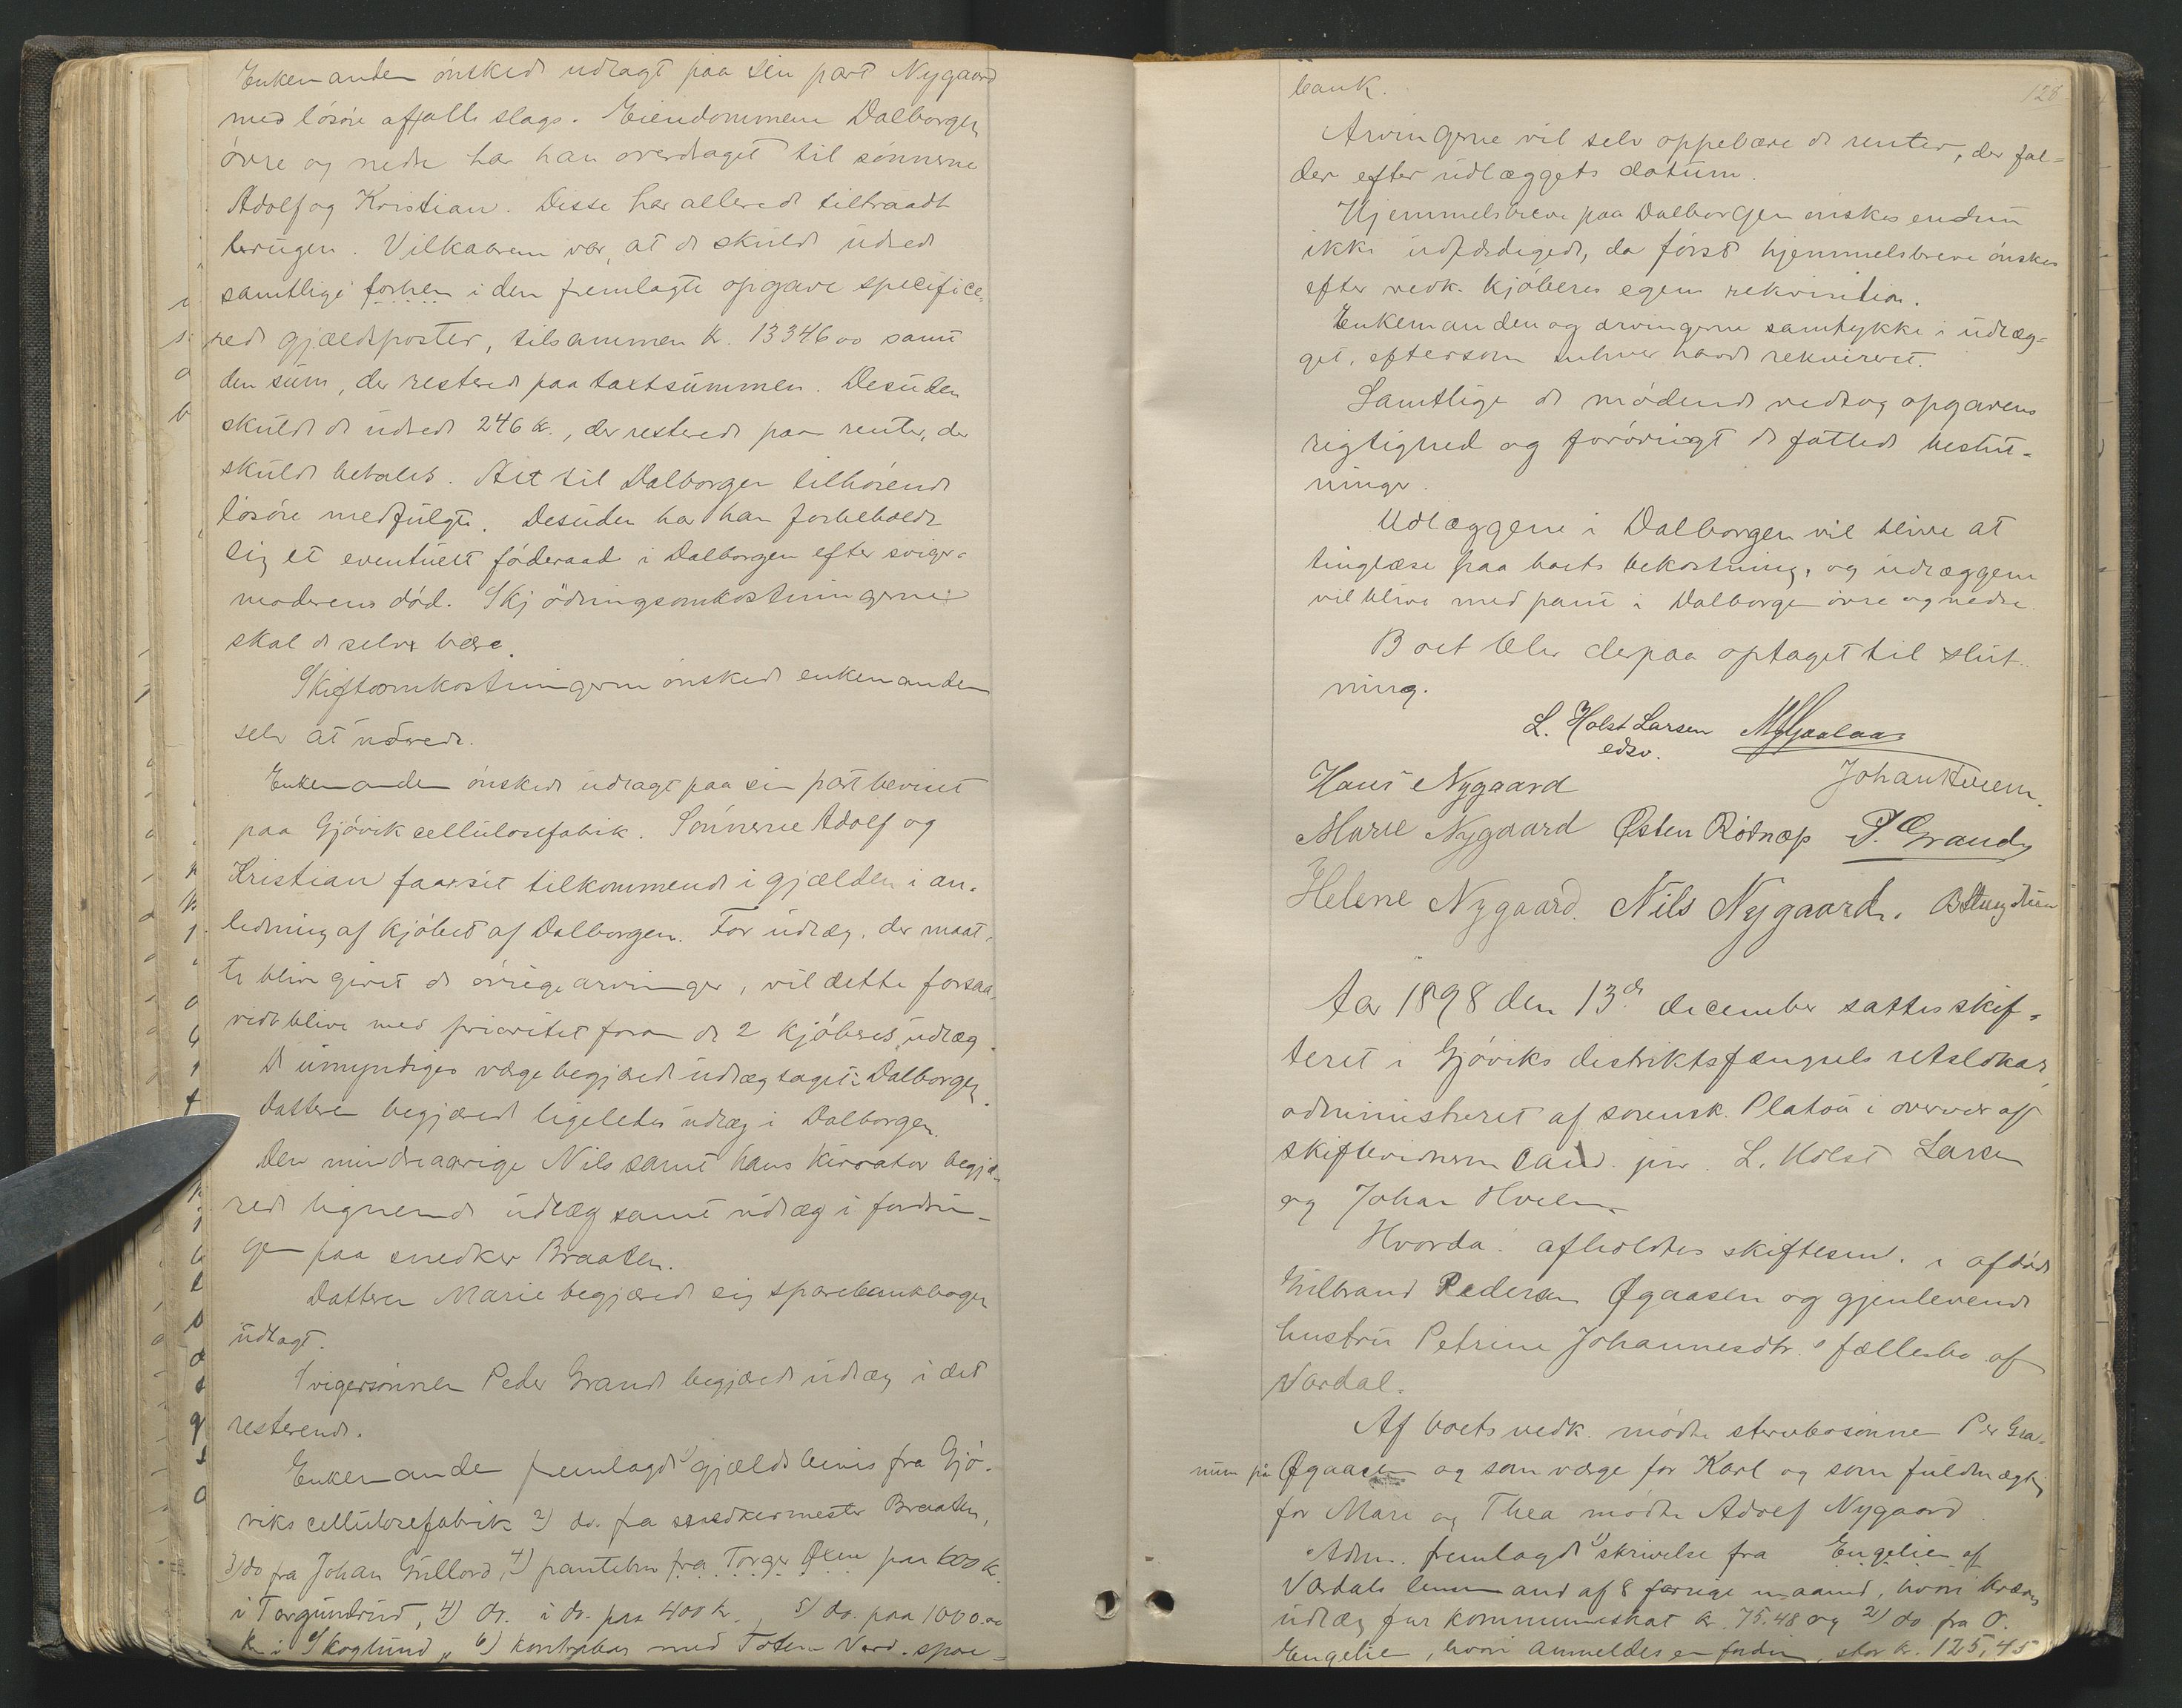 Enkemanden ónskede udlagt paa sin part Nygaard
med lósóre af alle slags. Eiendommene Dalborgen
óvre og nedre har han overdraget til sónnerne
Adolf og Kristian. Disse har allerede tiltraadt
brugen. Vilkaarene var, at de skulde udrede
samtlige forhen i den fremlagte opgave specifice-
rede gjældsposter, tilsammen kr. 13346 00 samt
den sum, der resterede paa taxtsummen. Desuden
skulde de udrede 246 kr., der resterede paa renter, der
skulde betales. Alt til Dalborgen tilhórende
lósóre medfulgte. Desuden har han forbeholdt
sig et eventuelt fóderaad i Dalborgen efter sviger-
moderens dód. Skjódningsomkostningerne
skal de selv bære.
Skifteomkostningerne ónskede enkemanden
selv at udrede.
Enkemanden ónskede udlagt paa sin part beviset
paa Gjóvik cellulosefabrik. Sónnerne Adolf og
Kristian faar sit tilkommende i gjælden i an-
ledning af kjóbet af Dalborgen. For udlæg, der maat-
te blive givet de óvrige arvinger, vil dette forsaa-
vidt blive med prioritet foran de 2 kjóberes udlæg.
De umyndiges værge begjærede udlæg taget i Dalborgen.
Datteren begjærede ligeledes udlæg i Dalborgen.
Den mindreaarige Nils samt hans kurator begjæ-
rede lignende udlæg samt udlæg i fordrin-
gen paa snedker Braaten.
Datteren Marie begjærede sig sparebankbogen
udlagt.
Svigersónnen Peder Grande begjærede udlæg i det
resterende.
Enkemanden fremlagde 1) gjældsbevis fra Gjó-
viks cellulosefabrik 2) do. fra snedkermester Braaten,
3) do fra Johan Gullord, 4) pantebrev fra Torger Øxne paa 600 kr.
i Torgundrud, 4) do. i do. paa 400 kr., 5) do. paa 1000.00
kr. i Skoglund, 6) kontrabog med Toten Vard. spare-
128
bank.
Arvingerne vil selv oppebære de renter, der fal-
der efter udlæggets datum.
Hjemmelsbreve paa Dalborgen ónskes endnu
ikke udfærdigede, da fórst hjemmelsbreve ónskes
efter vedk. kjóberes egen rekvisition.
Enkemanden og arvingerne samtykke i udlæg-
get, eftersom enhver havde rekvireret.
Samtlige de módende vedtog opgavens
rigtighed og foróvrigt de fattede beslut-
ninger.
Udlæggene i Dalborgen vil blive at
tinglæse paa boets bekostning, og udlæggene
vil blive med pant i Dalborgen óvre og nedre
Boet blev derpaa optaget til slut-
ning.
L. Holst Larsen
edsv.
Hans Nygaard Johan Hveem.
Marie Nygaard Østen Rødnæs P. Grande
Helene Nygaard. Nils Nygaard.
Aar 1898 den 13de december sattes skif-
teret i Gjóviks distriktsfængsels retslokar,
administreret af sorensk. Platou i overvær af
skiftevidnerne cand. jur. L. Holst Larsen
og Johan Hveem.
Hvorda: afholdtes skiftesam. i afdóde
Gulbrand Pedersen Øgaasen og gjenlevende
hustru Petrine Johannesdtr.s fællesbo af
Vardal.
Af boets vedk. módte stervbosónnen Per Gra-
num på Øgaasen og som værge for Karl og som fuldmægtig
for Mari og Thea módte Adolf Nygaard.
Adm. fremlagde 1) skrivelse fra Engelien af
Vardals lensmand af 8 forrige maaned, hvori kræves
udlæg for kommuneskat kr. 75.48 og 2) do fra O.
Engelien, hvori anmeldes en fordring, stor kr. 125,45